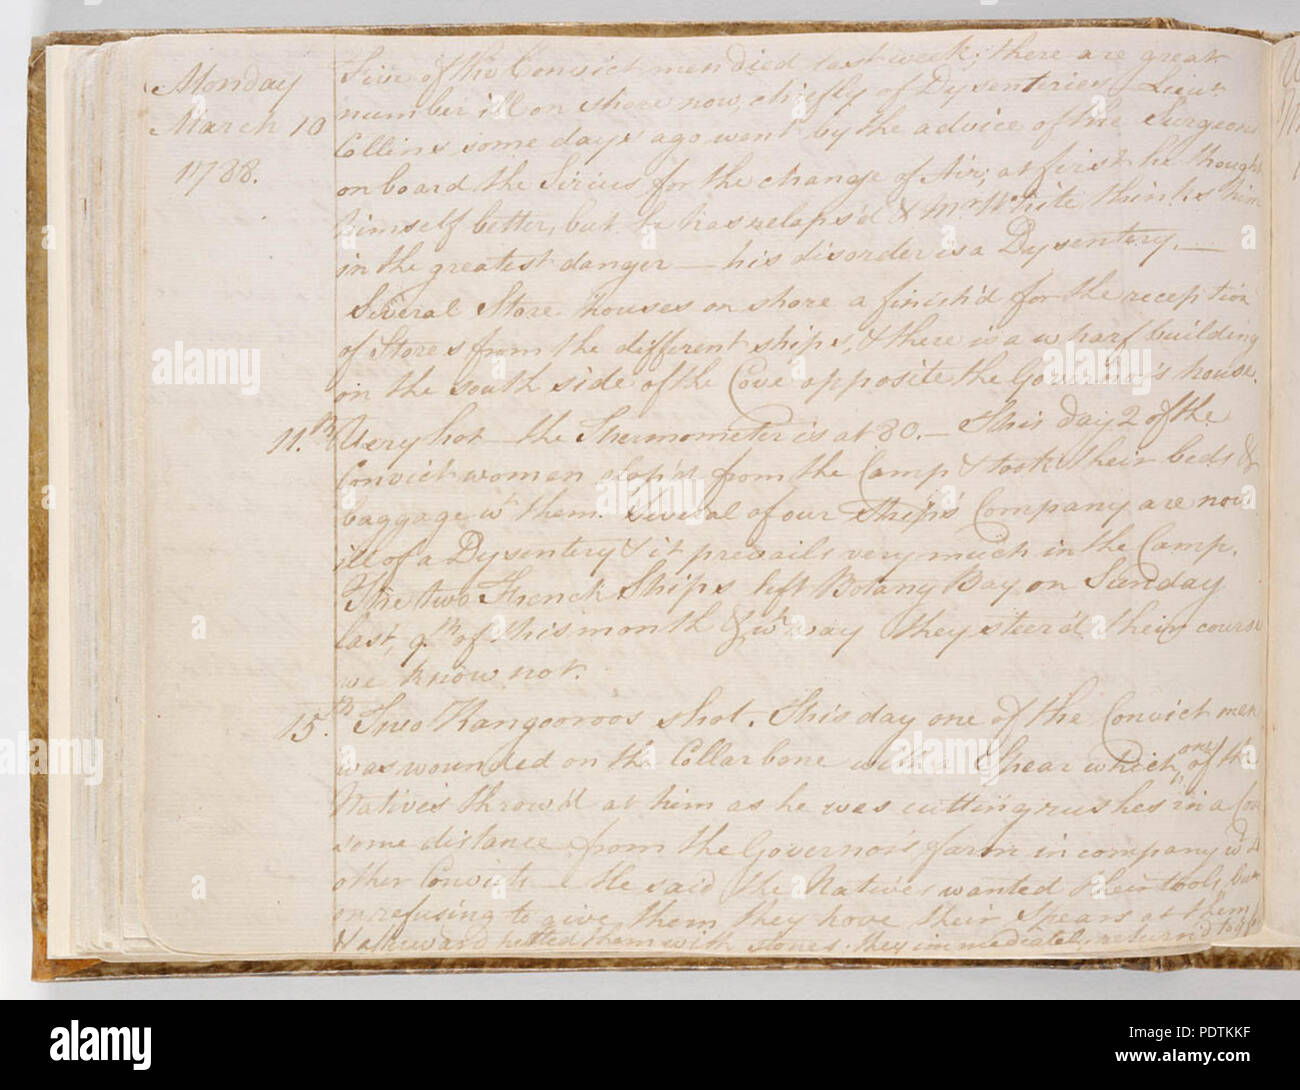 Monday
March 10
1788.
Five of the Convict men died last week; there are great
number ill on shore now, chiefly of Dysenteries, Lieut.
Collins some days ago went by the advice of the Surgeons
on board the Sirius for the change of Air; at first he thought
himself better, but he has relaps'd & Mr White thinks him
in the greatest danger — his disorder is a Dysentery. —
Several Store houses on shore a finish'd for the reception
of Stores from the different ships, & there is a wharf building
in the south side of the Cove opposite the Governor's house.
11.th Very hot — the Thermometer is at 80. — This day 2 of the
Convict women elop'd from the Camp & took their beds &
baggage wth them. Several of our Ship's Company are now
ill of a Dysentery & it prevails very much in the Camp.
The two French Ships left Botany Bay on Sunday
last, 9th of this month & wt way they steer'd their course
we know not.
15.th Two Kangooroos shot. This day one of the Convict men
was wounded on the Collar bone with a Spear which one of the
Natives throw'd at him as he was cutting rushes in a
some distance from the Governor's farm in company wth
other Convicts — He said the Natives wanted their tools, but
on refusing to give them they hove their Spears at them
& afterward pelted them with stones. they immediately return'd to
alamy
a
alamy stock photo
PDTKKF
Image ID: PDTKKF
www.alamy.com